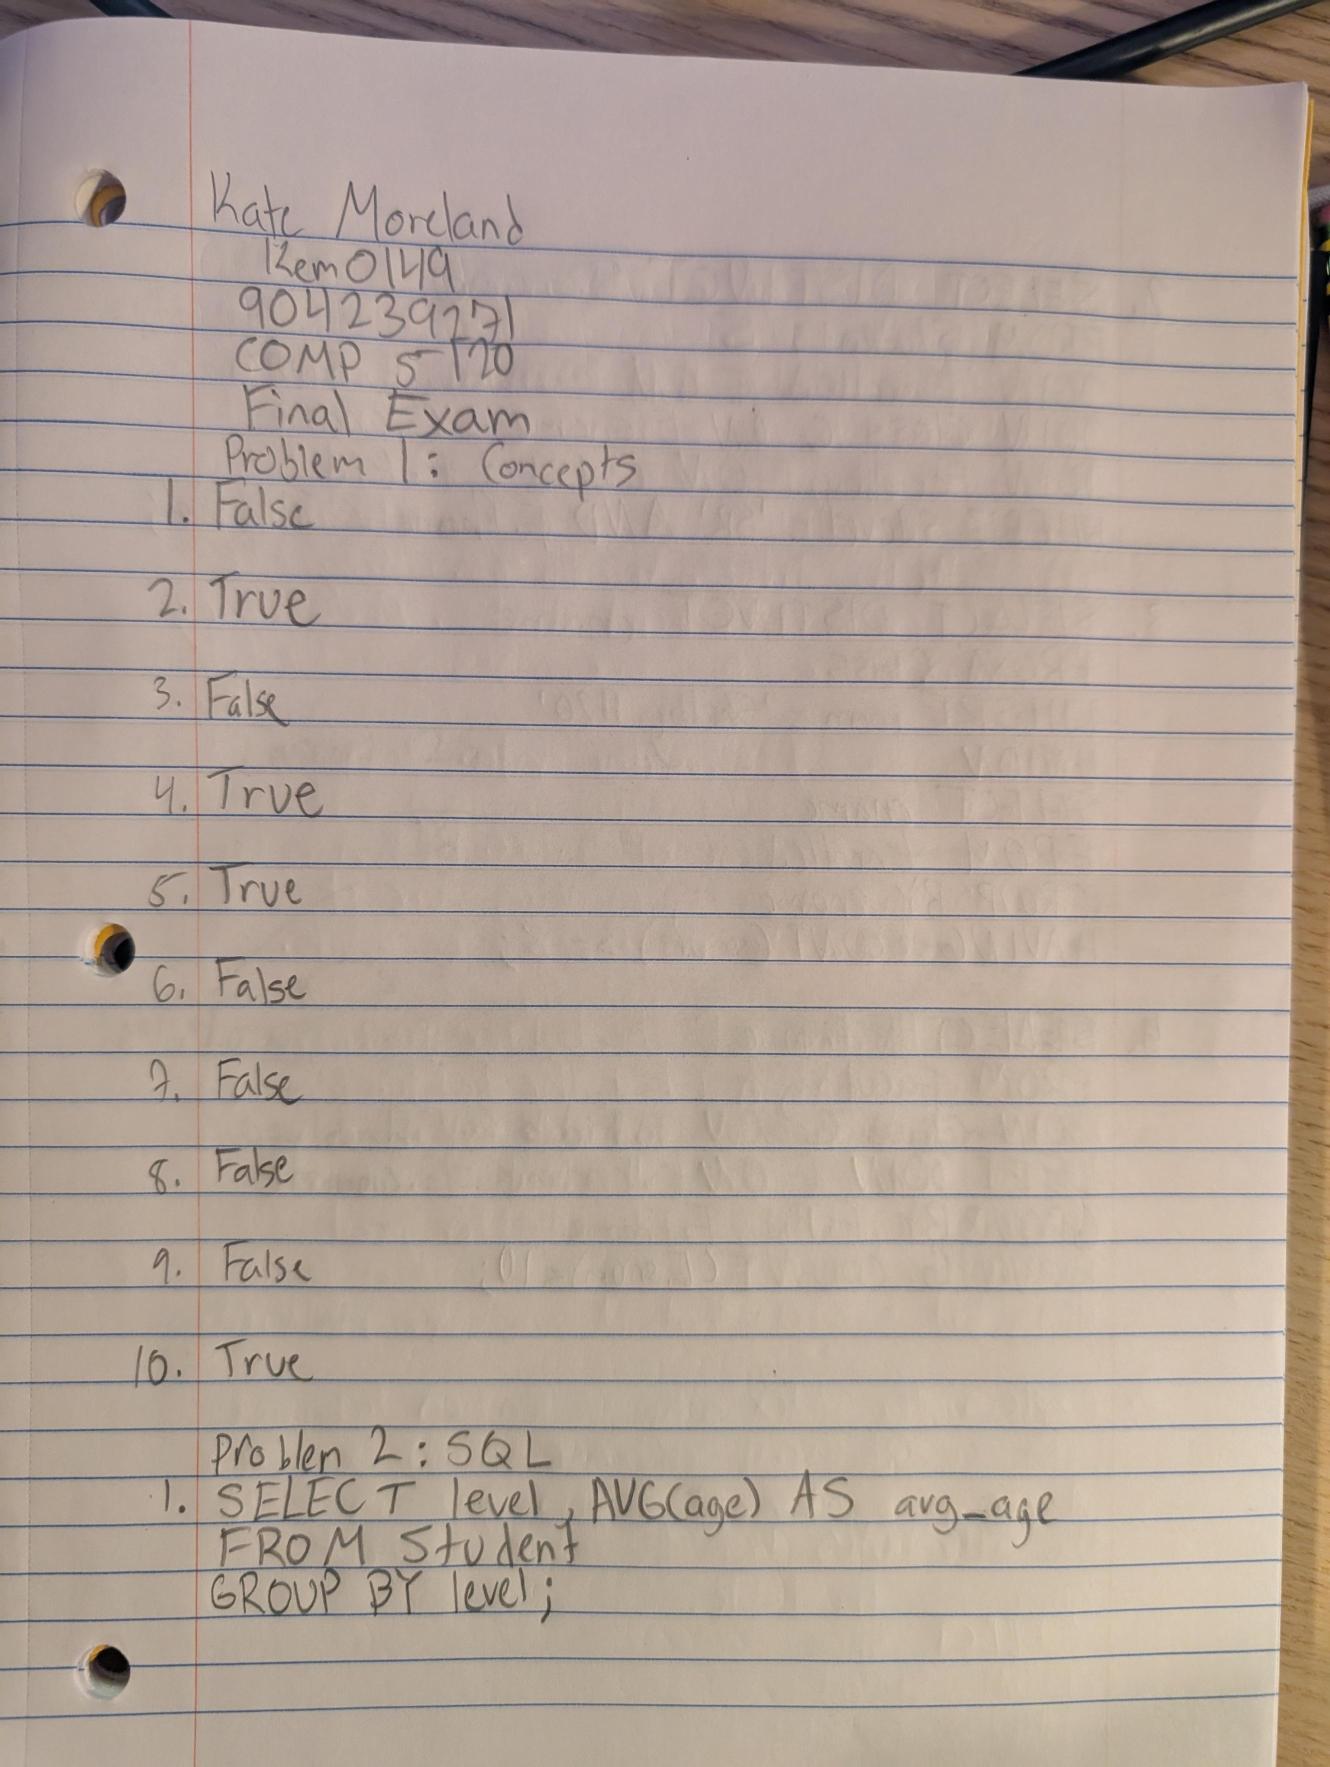 Kate Moreland
kem0149
904239271
COMP 5120
Final Exam
Problem 1: Concepts
1. False
2. True
3. False
4. True
5. True
6. False
7. False
8. False
9. False
10. True
Problem 2: SQL
1. SELECT level, AVG(age) AS avg_age
FROM Student
GROUP BY level;